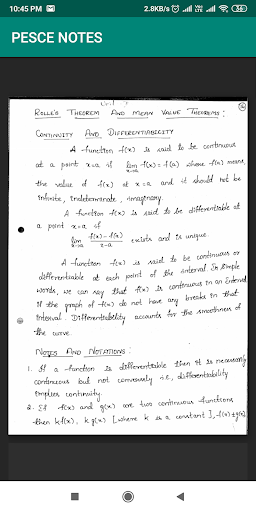 10:45 PM
2.8KB/s
56
PESCE NOTES
ROLLE'S THEOREM AND MEAN VALUE THEOREMS:
CONTINUITY AND DIFFERENTIABILITY
A function f(x) is said to be continuous
at a point x=a if lim x→a f(x) = f(a) where f(a) means
the value of f(x) at x=a and it should not be
infinite, indeterminate, imaginary.
A function f(x) is said to be differentiable at
a point x=a if
lim x→a f(x)-f(a) / x-a exists and is unique
A function f(x) is said to be continuous or
differentiable at each point of the interval. In Simple
words, we can say that f(x) is continuous in an Interval
if the graph of f(x) do not have any breaks in that
Interval. Differentiability accounts for the smoothness of
the curve.
NOTES AND NOTATIONS:
1. If a function is differentiable then it is necessarily
continuous but not conversely i.e., differentiability
implies continuity.
2. If f(x) and g(x) are two continuous functions
then kf(x), kg(x) [where k is a constant], f(x)±g(x),